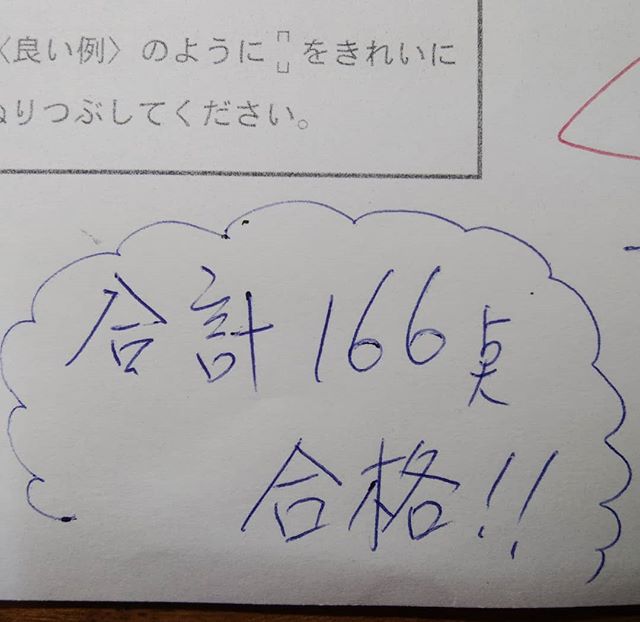 〈良い例〉のように▯をきれいに
ぬりつぶしてください。
合計166点
合格!!